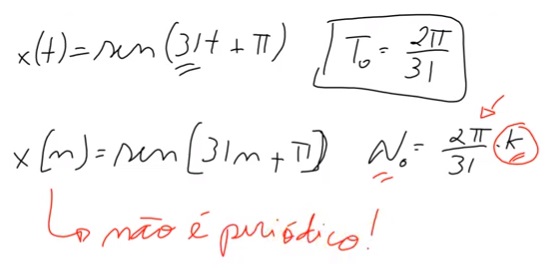 x(t) = sen(31t + π) T₀ = 2π/31
x[n] = sen[31n + π] N₀ = 2π/31 · k
↳ não é periódico!